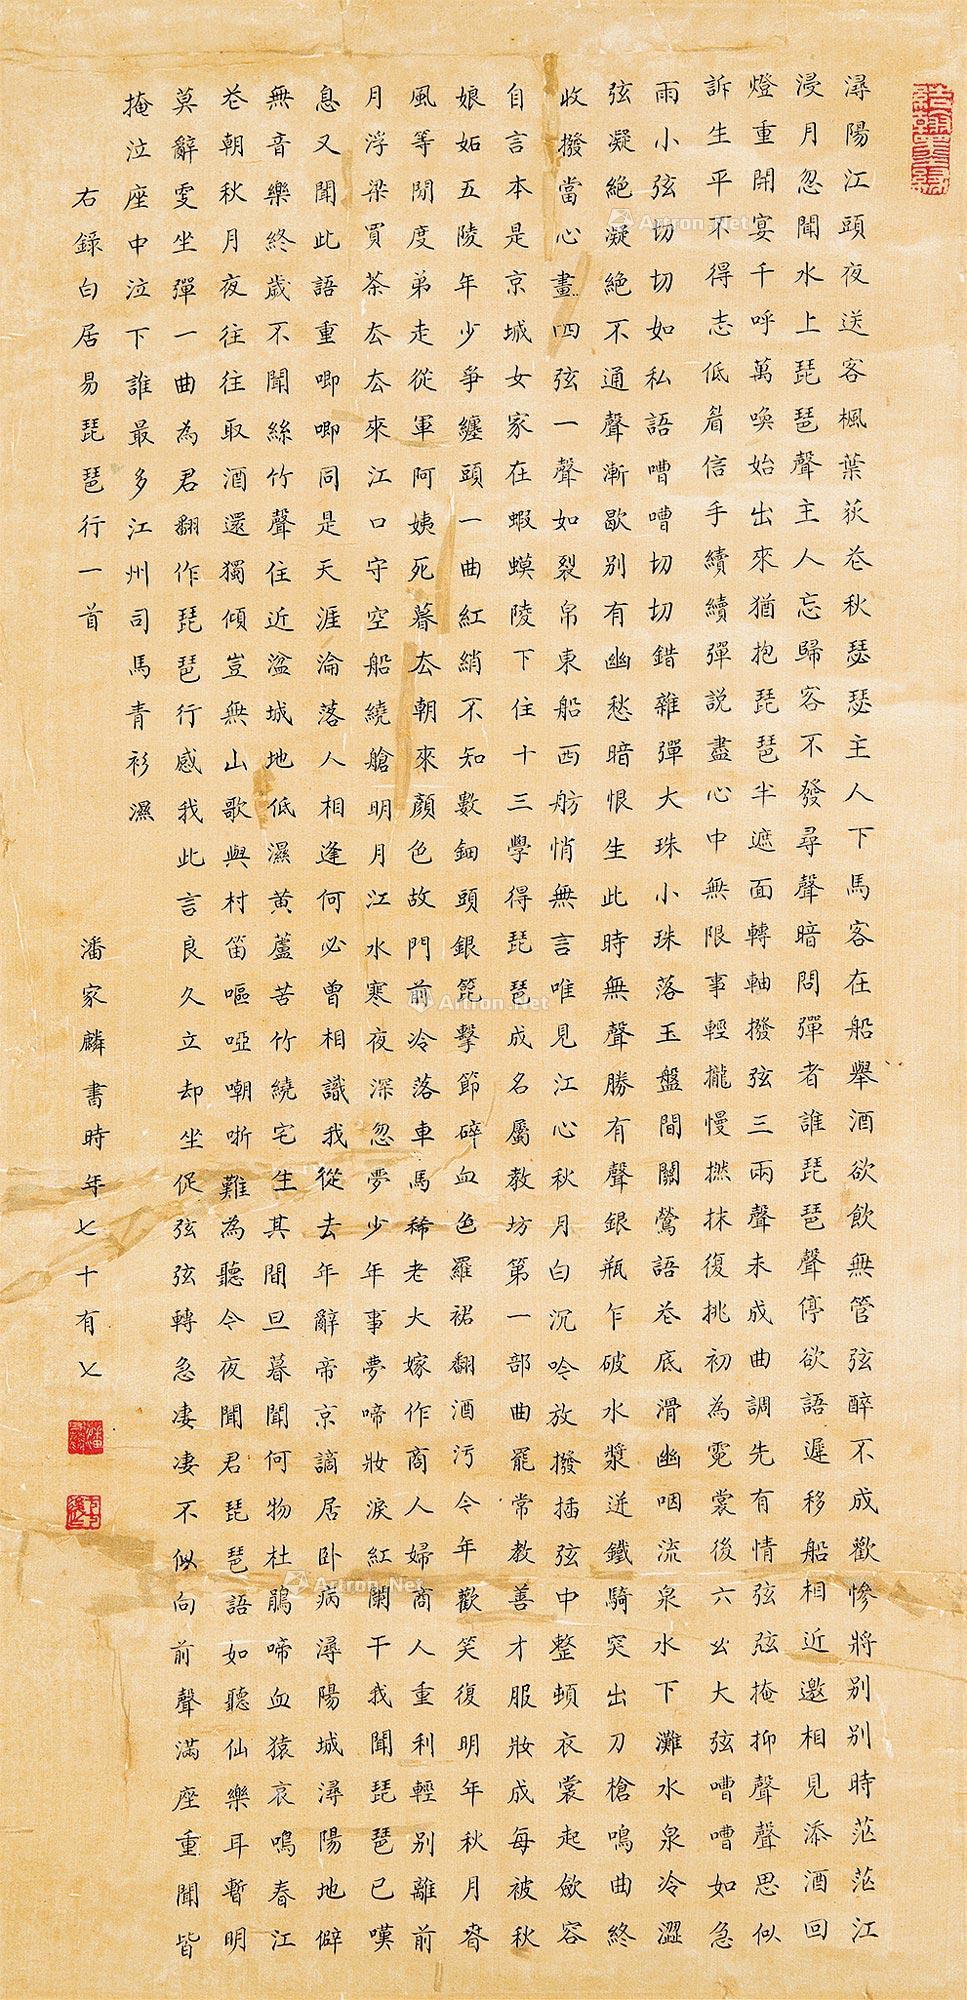 潯陽江頭夜送客楓葉荻花秋瑟瑟主人下馬客在船舉酒欲飲無管弦醉不成歡慘將別別時茫茫江
浸月忽聞水上琵琶聲主人忘歸客不發尋聲暗問彈者誰琵琶聲停欲語遲移船相近邀相見添酒回
燈重開宴千呼萬喚始出來猶抱琵琶半遮面轉軸撥弦三兩聲未成曲調先有情弦弦掩抑聲聲思似
訴生平不得志低眉信手續續彈說盡心中無限事輕攏慢撚抹復挑初為霓裳後六幺大弦嘈嘈如急
雨小弦切切如私語嘈嘈切切錯雜彈大珠小珠落玉盤間關鶯語花底滑幽咽流泉水下灘水泉冷澀
弦凝絕凝絕不通聲漸歇別有幽愁暗恨生此時無聲勝有聲銀瓶乍破水漿迸鐵騎突出刀槍鳴曲終
收撥當心畫四弦一聲如裂帛東船西舫悄無言唯見江心秋月白沉吟放撥插弦中整頓衣裳起斂容
自言本是京城女家在蝦蟆陵下住十三學得琵琶成名屬教坊第一部曲罷常教善才服妝成每被秋
娘妬五陵年少爭纏頭一曲紅綃不知數鈿頭銀篦擊節碎血色羅裙翻酒污今年歡笑復明年秋月春
風等閒度弟走從軍阿姨死暮去朝來顏色故門前冷落車馬稀老大嫁作商人婦商人重利輕別離前
月浮梁買茶去去來江口守空船繞艙明月江水寒夜深忽夢少年事夢啼妝淚紅闌干我聞琵琶已嘆
息又聞此語重唧唧同是天涯淪落人相逢何必曾相識我從去年辭帝京謫居臥病潯陽城潯陽地僻
無音樂終歲不聞絲竹聲住近湓城地低濕黃蘆苦竹繞宅生其間旦暮聞何物杜鵑啼血猿哀鳴春江
花朝秋月夜往往取酒還獨傾豈無山歌與村笛嘔啞嘲哳難為聽今夜聞君琵琶語如聽仙樂耳暫明
莫辭更坐彈一曲為君翻作琵琶行感我此言良久立却坐促弦弦轉急凄凄不似向前聲滿座重聞皆
掩泣座中泣下誰最多江州司馬青衫濕
右錄白居易琵琶行一首 潘家麟書時年七十有七
Artron.Net
Artron.Net
Artron.Net